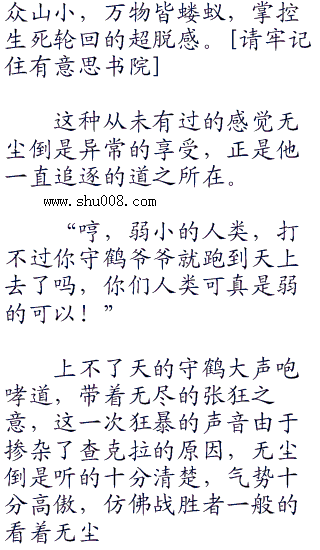 众山小，万物皆蝼蚁，掌控
生死轮回的超脱感。[请牢记
住有意思书院]
这种从未有过的感觉无
尘倒是异常的享受，正是他
一直追逐的道之所在。
www.shu008.com
“哼，弱小的人类，打
不过你守鹤爷爷就跑到天上
去了吗，你们人类可真是弱
的可以！”
上不了天的守鹤大声咆
哮道，带着无尽的张狂之
意，这一次狂暴的声音由于
掺杂了查克拉的原因，无尘
倒是听的十分清楚，气势十
分高傲，仿佛战胜者一般的
看着无尘